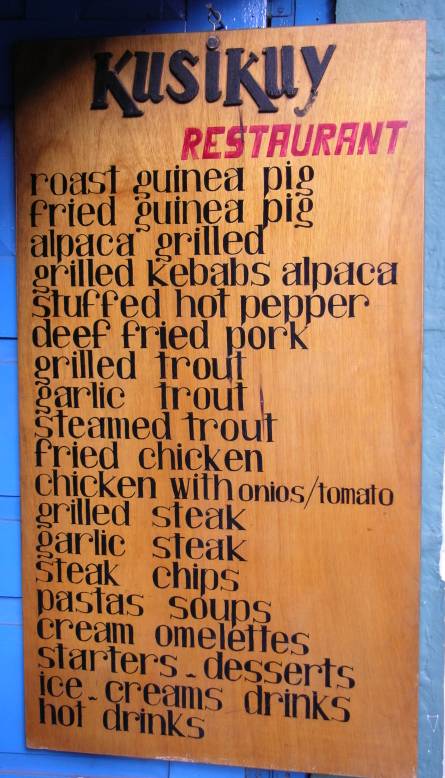 KusiKuy
RESTAURANT
roast guinea pig
fried guinea pig
alpaca grilled
grilled kebabs alpaca
stuffed hot pepper
deef fried pork
grilled trout
garlic trout
steamed trout
fried chicken
chicken with onios/tomato
grilled steak
garlic steak
steak chips
pastas soups
cream omelettes
starters-desserts
ice-creams drinks
hot drinks